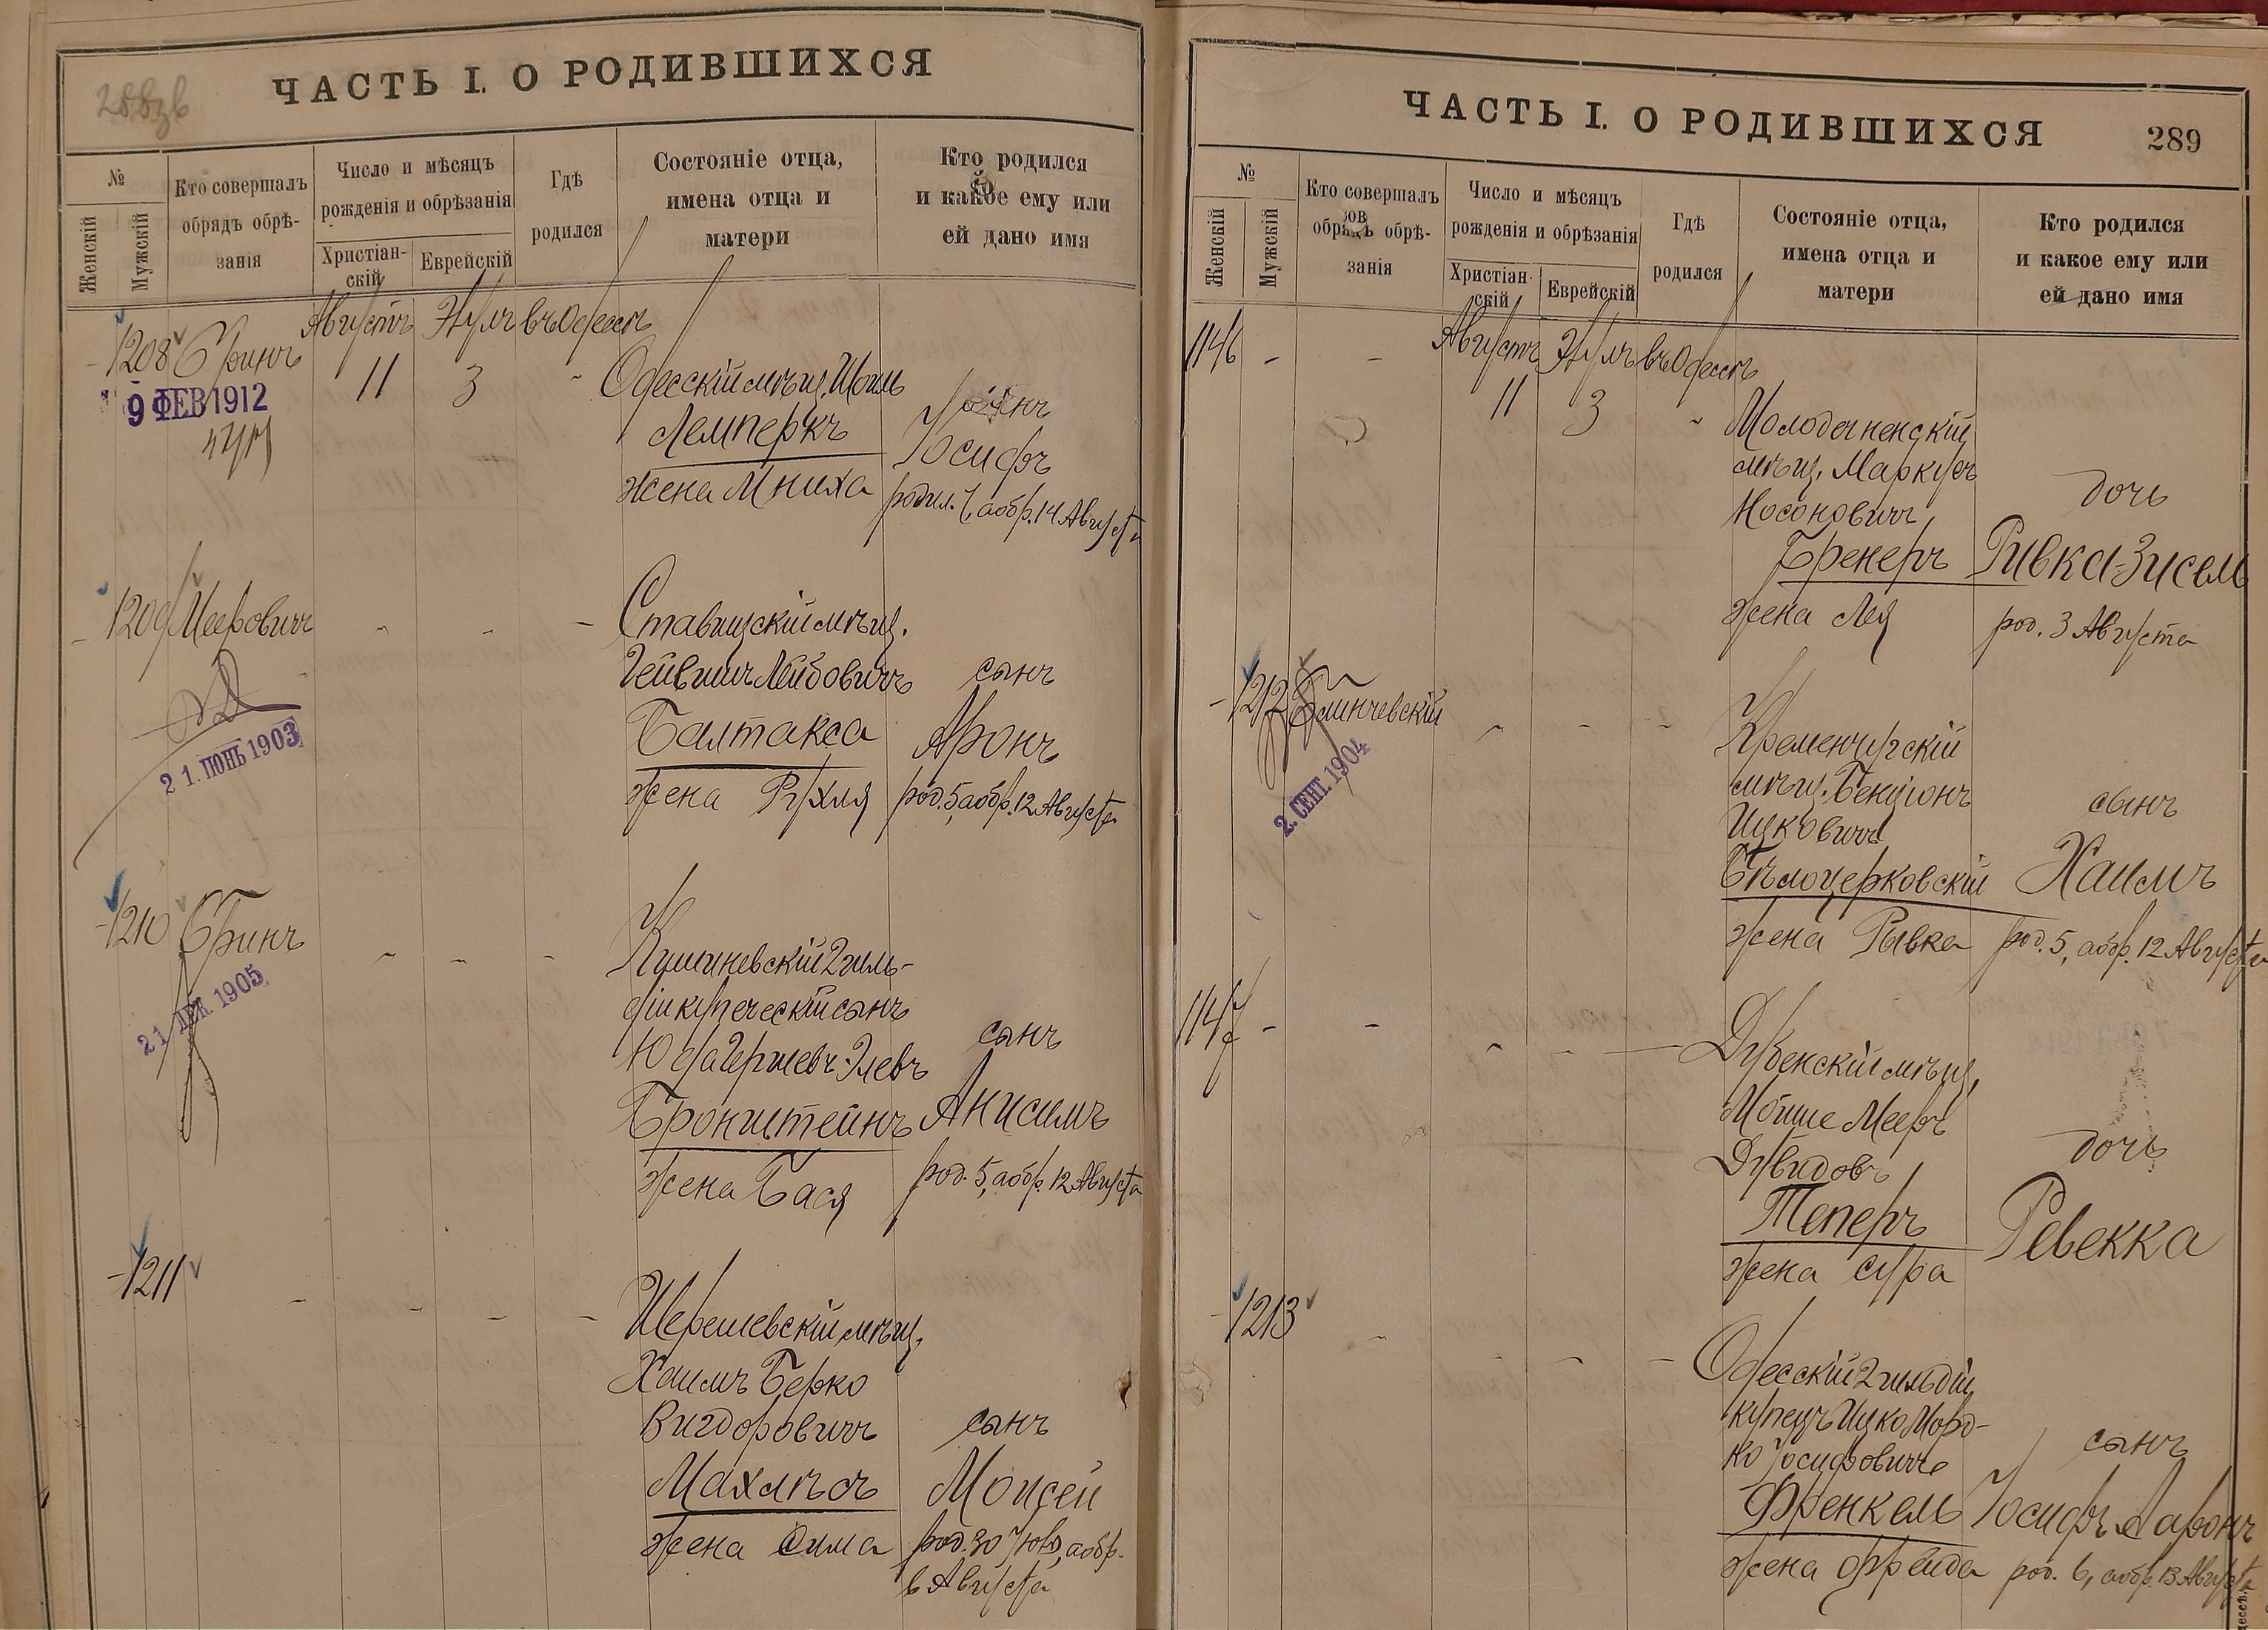 288зв
ЧАСТЬ I. О РОДИВШИХСЯ
№
Женскій
Мужскій
Кто совершалъ
обрядъ обрѣ-
занія
Число и мѣсяцъ
рожденія и обрѣзанія
Христіан-
скій
Еврейскій
Гдѣ
родился
Состояніе отца,
имена отца и
матери
Кто родился
и какое ему или
ей дано имя
Августъ Элулъ въ Одессѣ
1208 Гринъ
11 3
9 ФЕВ 1912
Одесскій мѣщ.
Лемперкъ
жена Мниха
сынъ
Іосифъ
родил. 7, а обр. 14 Августа
1209 Мееровичъ
21. ІЮНЬ 1903
Ставищскій мѣщ.
Лейбовичъ
Балтакса
жена Рухля
сынъ
Аронъ
род. 5, а обр. 12 Августа
1210 Гринъ
21 ДЕК. 1905
Кишиневскій 2 гиль-
діи купеческій сынъ
Юда Гершевъ-Элевъ
Бронштейнъ
жена Бася
сынъ
Анисимъ
род. 5, а обр. 12 Августа
1211
Шерешевскій мѣщ.
Хаимъ Берко
Вигдоровичъ
Махлѣсъ
жена Сима
сынъ
Моисей
род. 30 Іюля, а обр.
6 Августа
ЧАСТЬ I. О РОДИВШИХСЯ
289
№
Женскій
Мужскій
Кто совершалъ
обрядъ обрѣ-
занія
Число и мѣсяцъ
рожденія и обрѣзанія
Христіан-
скій
Еврейскій
Гдѣ
родился
Состояніе отца,
имена отца и
матери
Кто родился
и какое ему или
ей дано имя
Августъ Элулъ въ Одессѣ
1146 - -
11 3
Молодечненскій
мѣщ. Маркусъ
Носоновичъ
Бренеръ
жена Лея
дочь
Ривка-Зисель
род. 3 Августа
1212
2. СЕНТ. 1904
Кременчугскій
мѣщ. Бенціонъ
Ицковичъ
Бѣлоцерковскій
жена Рывка
сынъ
Хаимъ
род. 5, а обр. 12 Августа
1147 - -
Дубенскій мѣщ.
Мойше Мееръ
Дувидовъ
Теперъ
жена Сура
дочь
Ревекка
1213
Одесскій 2 гильдіи
купецъ Ицко Морд-
ко Іосифовичъ
Френкель
жена Фрейда
сынъ
Іосифъ Аронъ
род. 6, а обр. 13 Августа